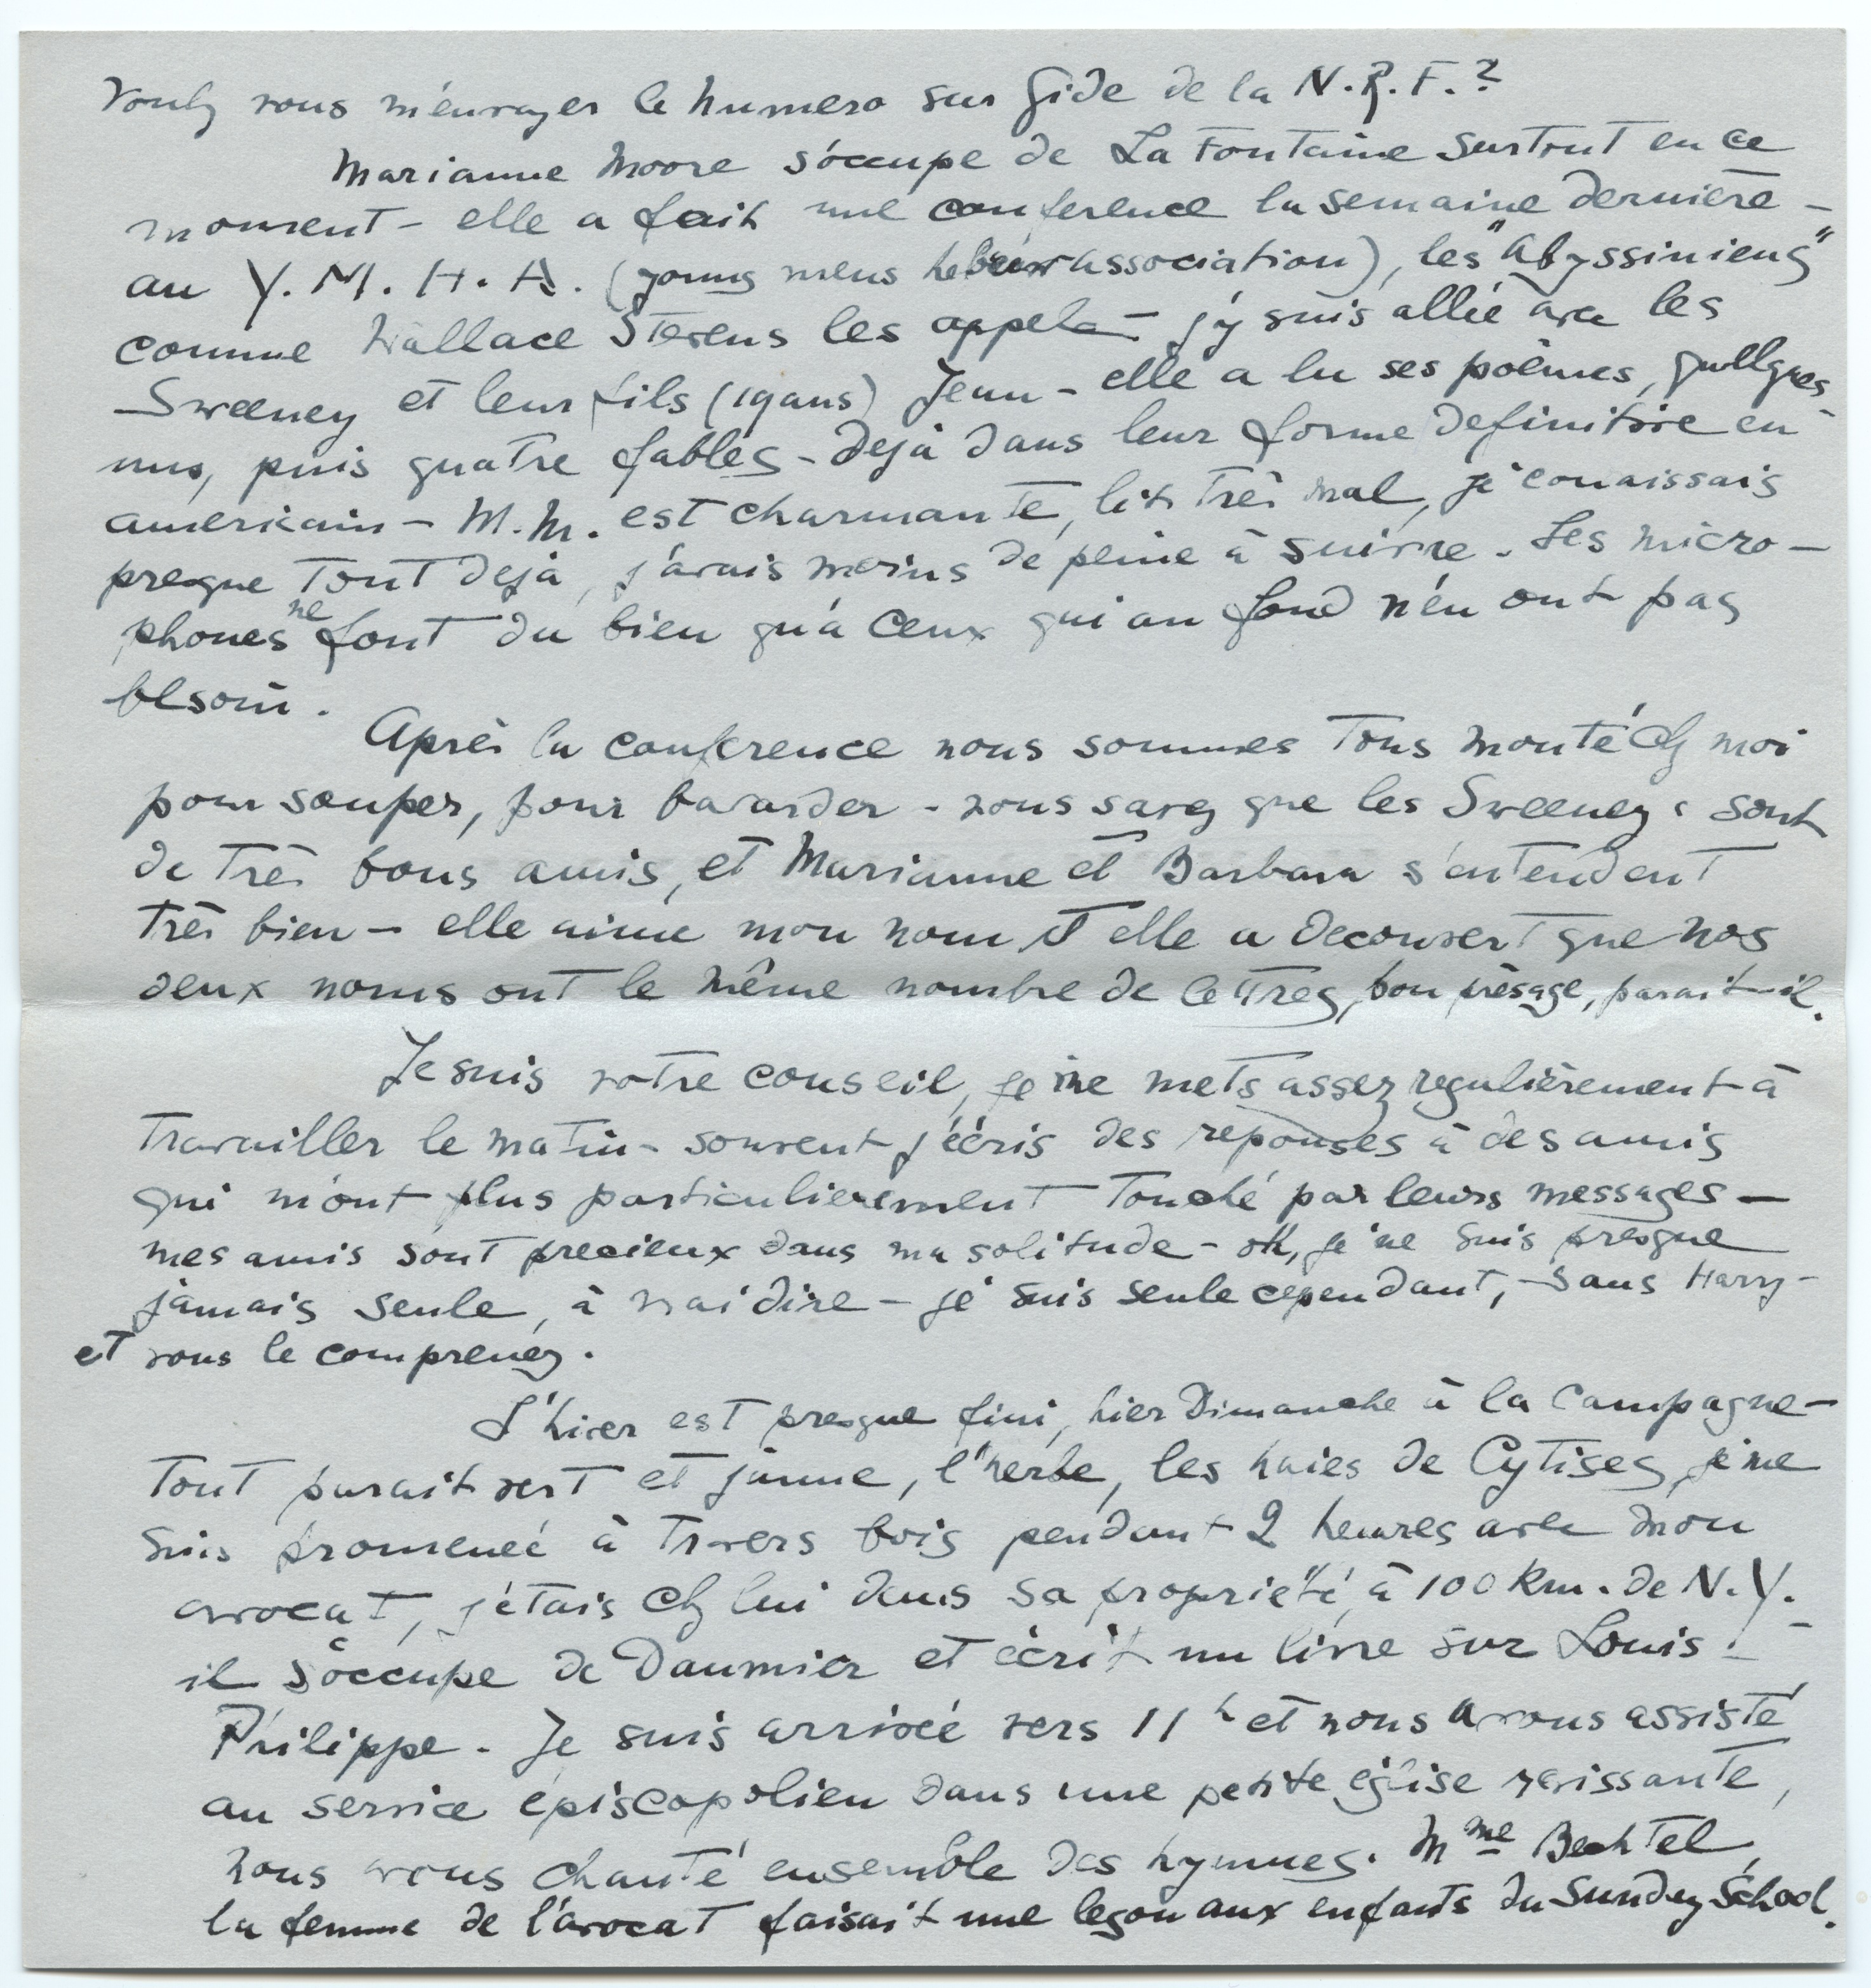 Voulez vous m'envoyer le numero sur Gide de la N.R.F.?
Marianne Moore s'occupe de La Fontaine surtout en ce
moment – elle a fait une conference la semaine dernière –
au Y.M.H.A. (young mens hebrew association), les "Abyssiniens"
comme Wallace Stevens les appela – j'y suis allée avec les
Sweeney et leur fils (19 ans) Jean – elle a lu ses poèmes, quelques
uns, puis quatre fables – dejà dans leur forme definitive en
americain – M.M. est charmante, lit très mal, je conaissais
presque tout dejà, j'avais moins de peine à suivre. Les micro-
phones ne font du bien qu'à ceux qui au fond n'en ont pas
besoin.
Après la conference nous sommes tous monté chez moi
pour souper, pour bavarder – vous savez que les Sweeney's sont
de très bons amis, et Marianne et Barbara s'entendent
très bien – elle aime mon nom et elle a decouvert que nos
deux noms ont le même nombre de lettres, bon présage, parait-il.
Je suis votre conseil, je me mets assez regulièrement à
travailler le matin – souvent j'écris des reponses à des amis
qui m'ont plus particulierement touché par leurs messages –
mes amis sont precieux dans ma solitude – oh, je ne suis presque
jamais seule, à vrai dire – je suis seule cependant, – sans Harry –
et vous le comprenez.
L'hiver est presque fini, hier Dimanche à la Campagne –
tout parait vert et jaune, l'herbe, les haies de Cytises, je me
suis promeneé à travers bois pendant 2 heures avec mon
avocat, j'étais chez lui dans sa proprieté, à 100 km. de N.Y. –
il s'occupe de Daumier et écrit un livre sur Louis –
Philippe. Je suis arrivée vers 11 h et nous avons assisté
au service épiscopolien dans une petite église ravissante,
nous avons chanté ensemble des hymnes. Mme Bechtel,
la femme de l'avocat faisait une leçon aux enfants du Sunday School.